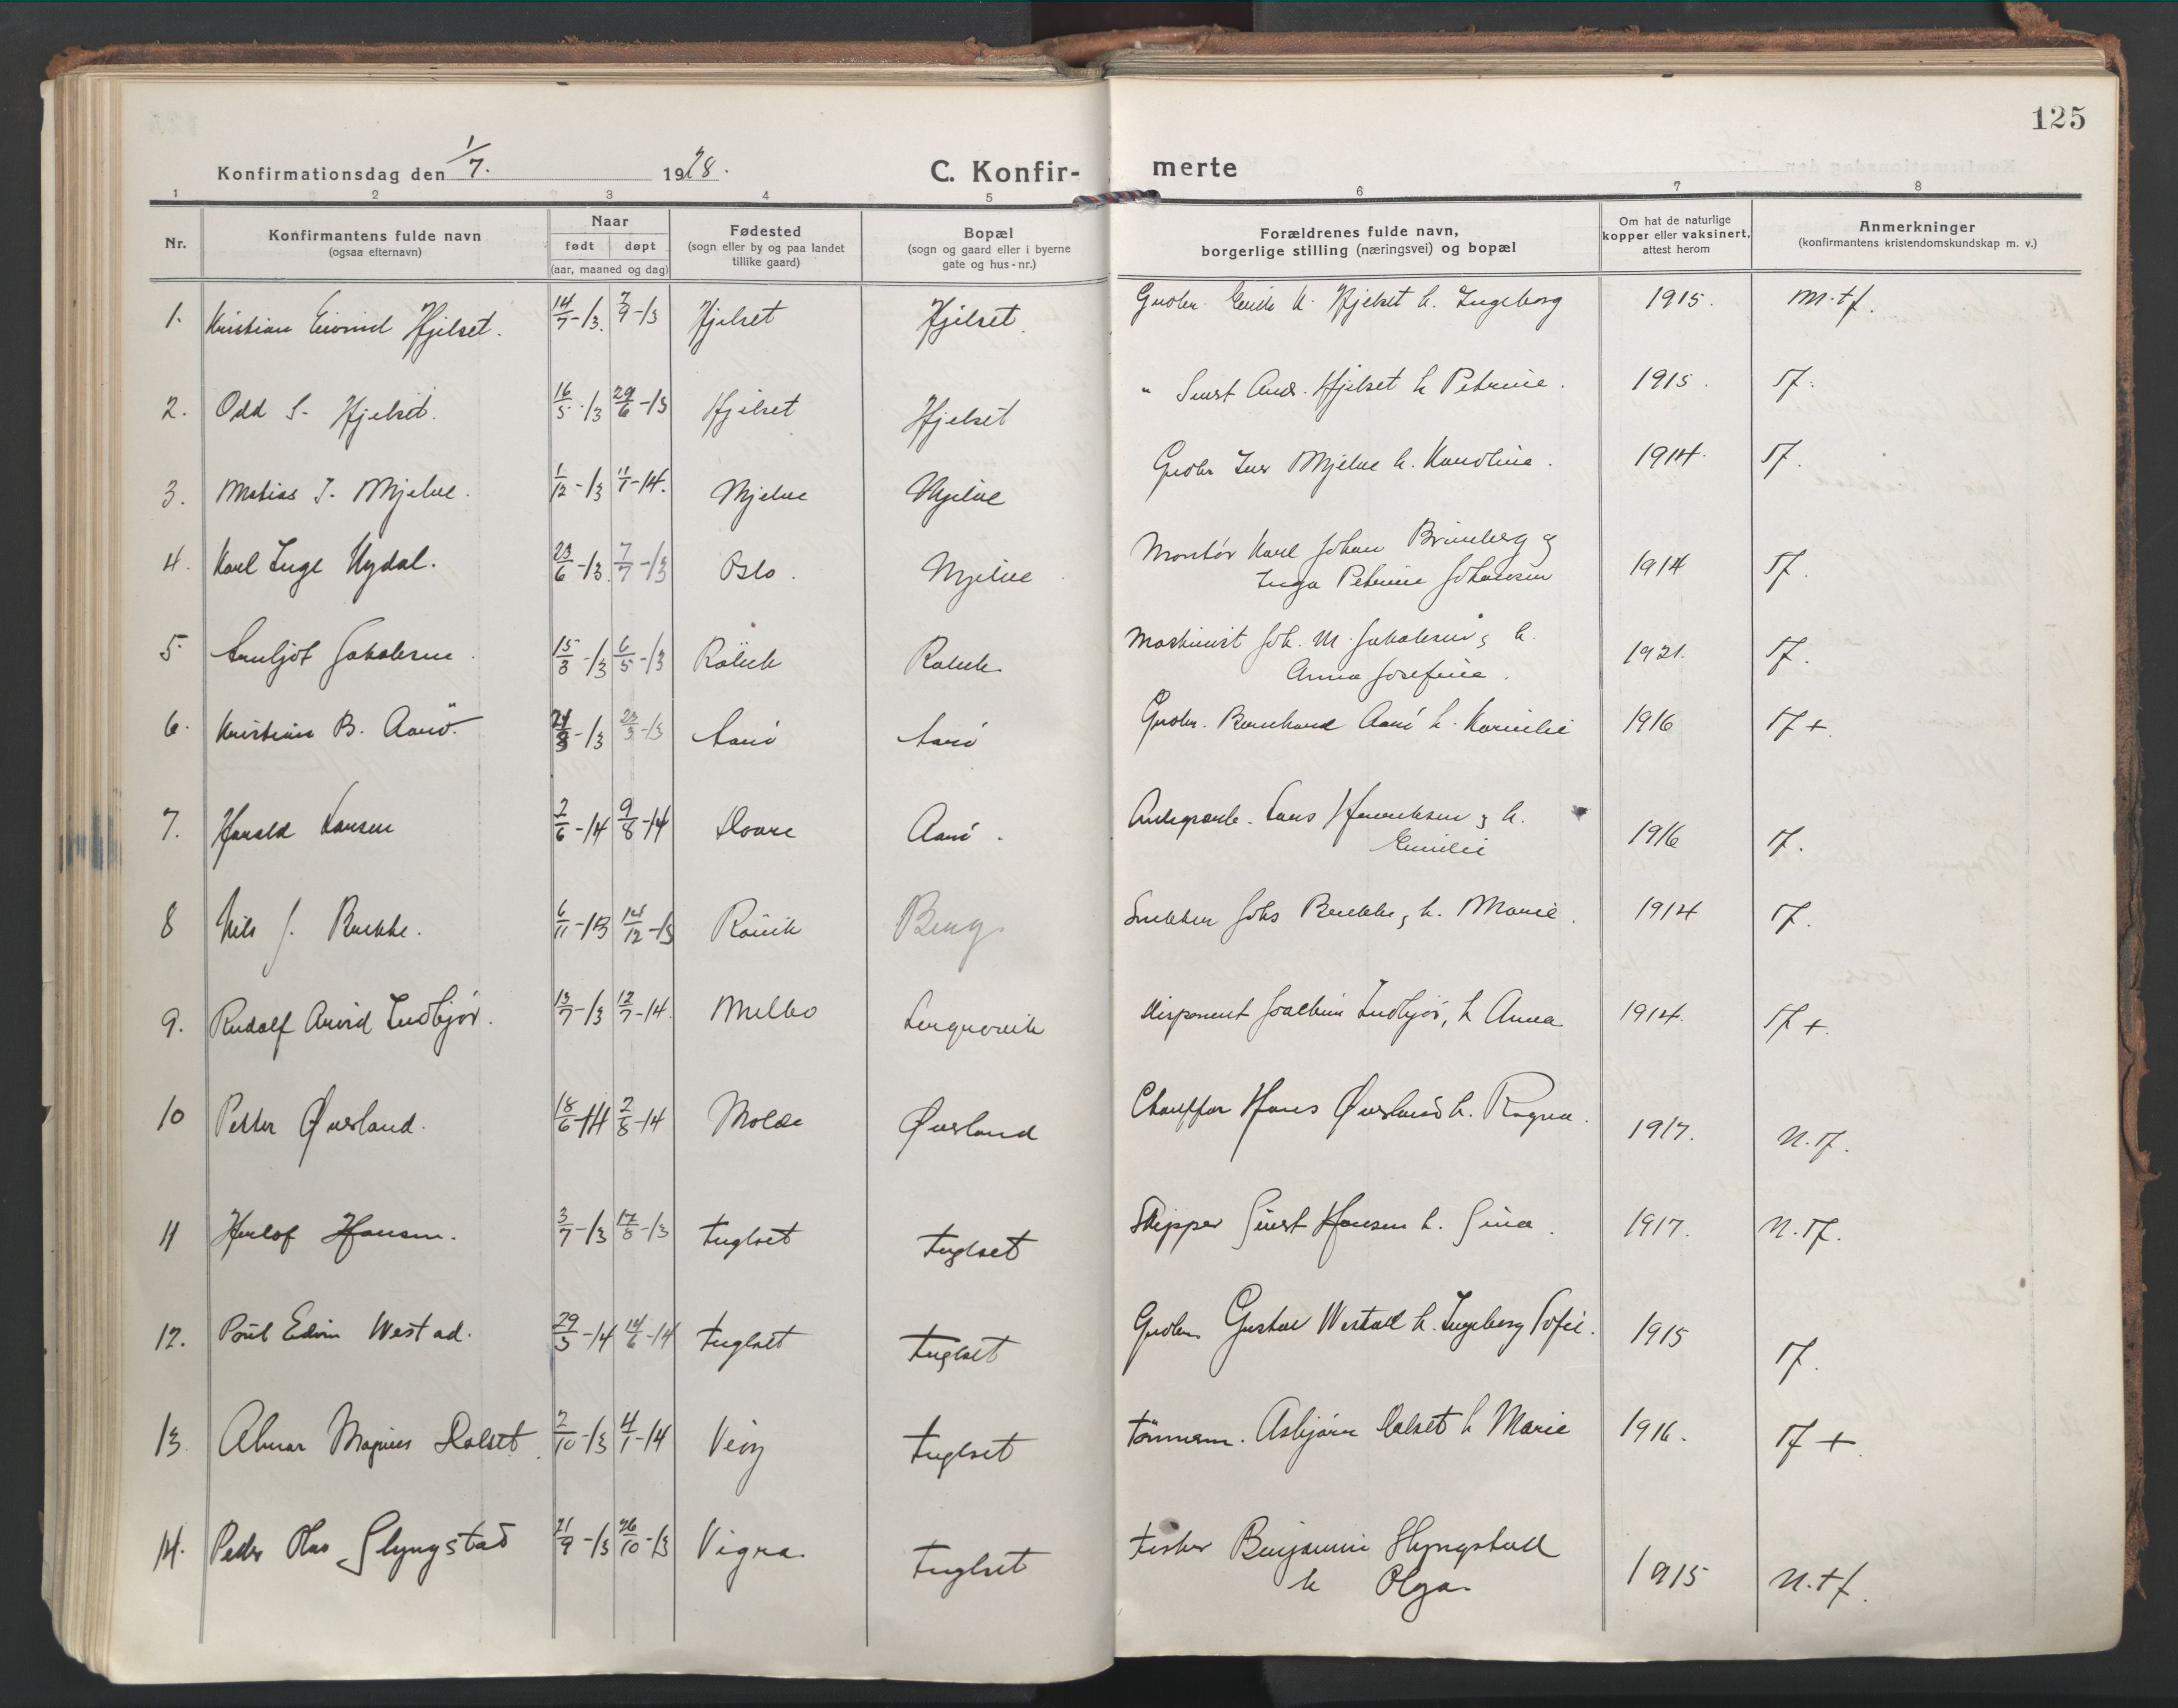 125
Konfirmationsdag den 1/7. 1928.
C. Konfir- merte
1 2 3 4 5 6 7 8
Nr.
Konfirmantens fulde navn
(ogsaa efternavn)
Naar
født døpt
(aar, maaned og dag)
Fødested
(sogn eller by og paa landet
tillike gaard)
Bopæl
(sogn og gaard eller i byerne
gate og hus-nr.)
Forældrenes fulde navn,
borgerlige stilling (næringsvei) og bopæl
Om hat de naturlige
kopper eller vaksinert,
attest herom
Anmerkninger
(konfirmantens kristendomskundskap m. v.)
1. Kristian Eivind Hjelset. 14/7-13. 7/9-13 Hjelset Hjelset. Gudbr. K. Hjelset h. Ingeborg 1915. M.tf.
2. Odd S. Hjelset. 16/5-13 29/6-13 Hjelset Hjelset " Sivert And. Hjelset h Petrine. 1915. Tf.
3. Matias I. Mjelve. 1/12-13 11/1-14. Mjelve Mjelve Gudbr Iver Mjelve h. Karoline. 1914. Tf.
4. Karl Inge Nydal. 23/6-13. 7/7-13 Oslo. Mjelve Montør Karl Johan Brimberg og
Inga Petrine Johansen 1914 Tf.
5 Arnljot Jakobsen. 15/3-13 6/5-13 Rölvik Rølvik Maskinist Joh. M. Jakobsen, h.
Anna Josefine. 1921. Tf.
6. Kristian B. Aarö. 13 23/3-13 Aarö Aarö Gudbr. Bernhard Aarö h. Kornelie 1916 Tf +
7. Harald Larsen 2/6-14 9/8-14 Aarö. Lars Henriksen, h.
Emilie 1916 Tf.
8 Nils J. Brekke. 6/11-13 14/12-13 Rövik Berg Snekker Johs Brekke, h. Marie. 1914 Tf.
9. Rudolf Arvid Indbjör. 13/7-13 12/7-14. Melbo Disponent Joachim Indbjör, h Anna 1914. Tf +.
10 Petter Øverland. 18/6-14 2/8-14 Molde Øverland Chauffør Hans Øverland h. Ragna. 1917. N.Tf.
11 Herlof Hansen. 3/7-13 17/8-13 Fuglset Fuglset Skipper Sivert Hansen h. Gina. 1917. N.Tf.
12. Poul Edvin Westad. 29/3-14 14/6-14 Fuglset Fuglset Gudbr. Gustav Westad h. Ingeborg Sofie. 1915 Tf.
13. Almar Magnus Dalset. 2/10-13 4/1-14 Veöy Fuglset Tömmerm. Asbjörn Dalset h Marie 1916. Tf +.
14. Peder Olav Slyngstad 21/9-13 26/10-13 Vigra Fuglset Fisker Benjamin Slyngstad
h Olga. 1915 N.tf.